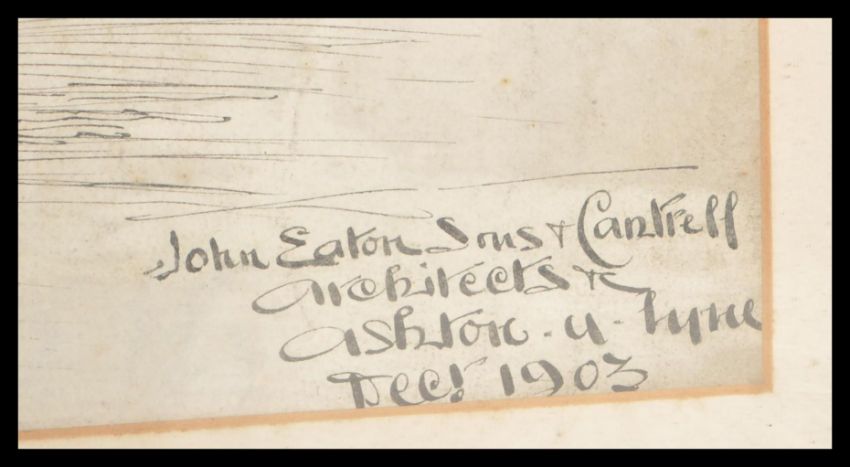 John Eaton Sons & Cantrell
Architects &c
Ashton - u - Lyne
Decr 1903